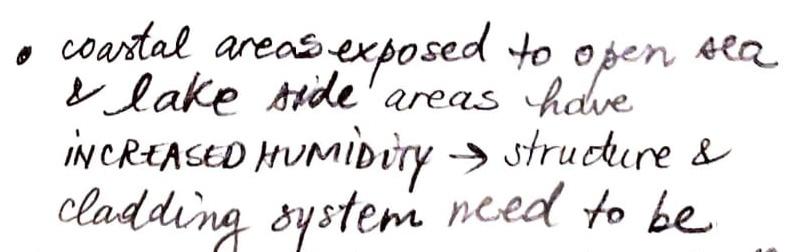 • coastal areas exposed to open sea
& lake side areas have
INCREASED HUMIDITY → structure &
cladding system need to be